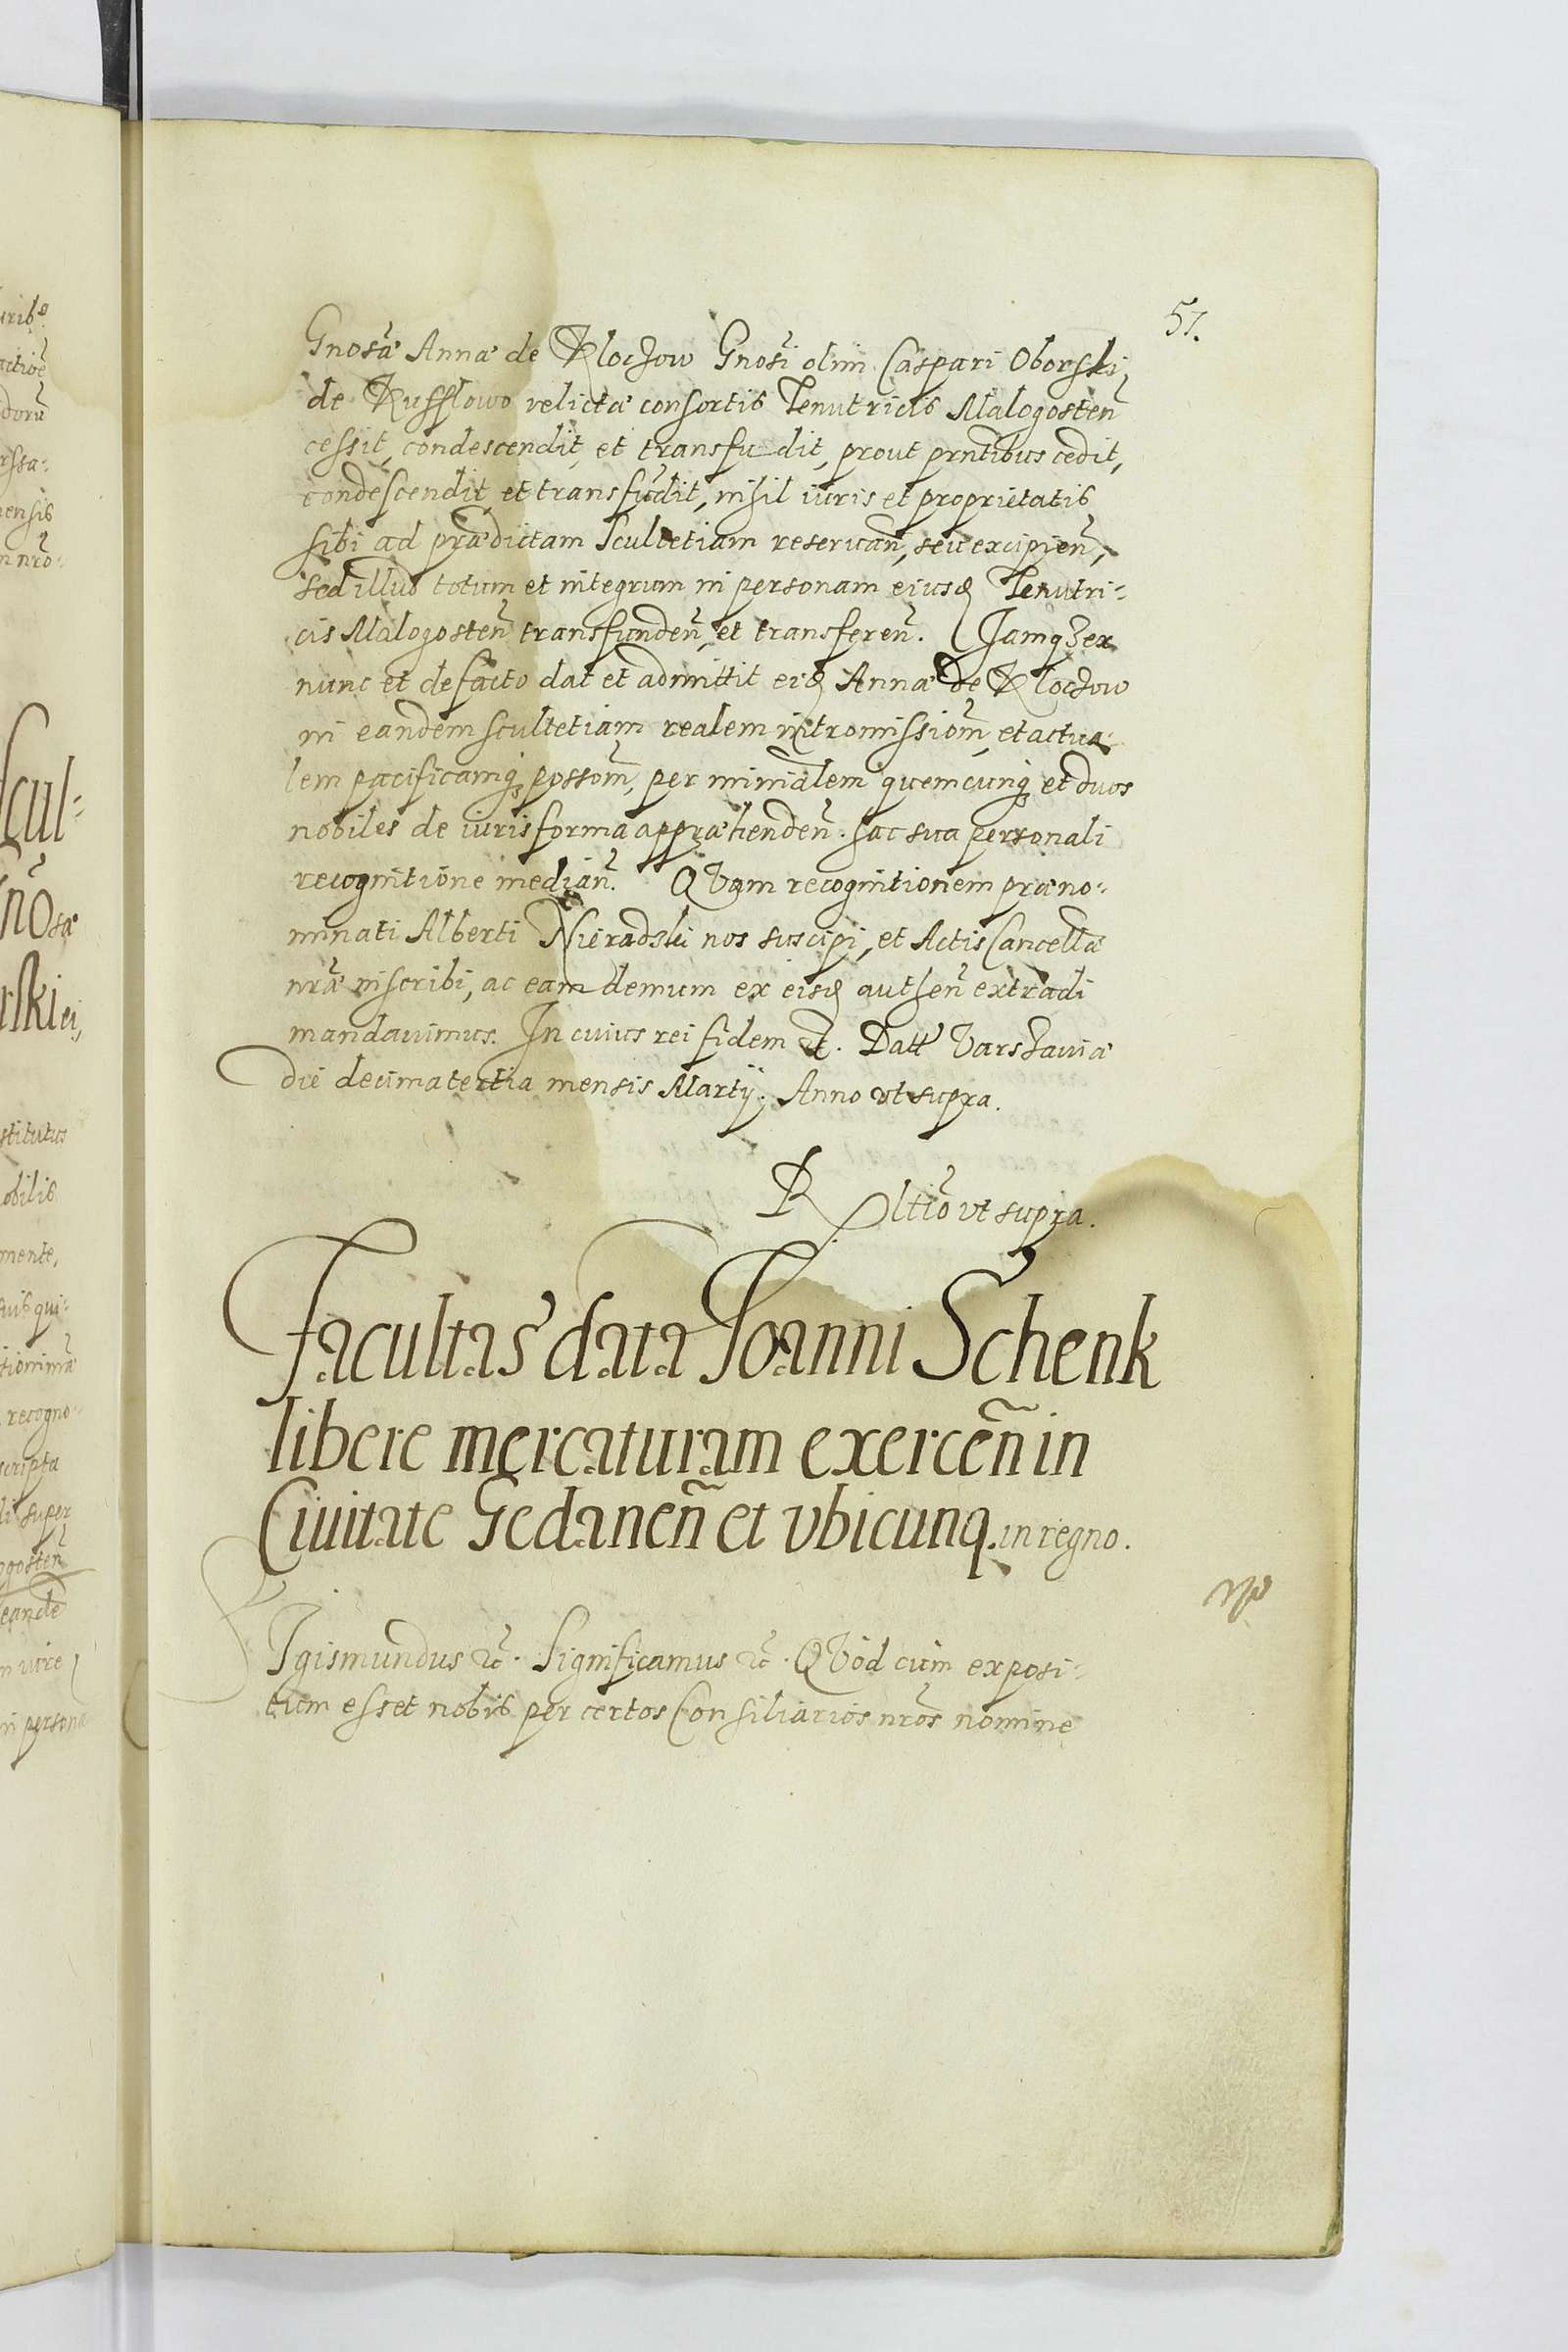 57.
Gnosæ Annæ de Klochow Gnosi olim Caspari Oborski
de Kussłowo relictæ consortis Tenutricis Malogosteñ
cessit, condescendit, et transfudit, prout prñtibus cedit,
condescendit et transfudit, nihil iuris et proprietatis
sibi ad prædictam Scultetiam reseruañ, seu excipieñ,
sed illud totum et integrum in personam eiusd Tenutri-
cis Malogosteñ transfundeñ, et transfereñ. Jamq3 ex
nunc et de facto dat et admittit eid Annæ de Klochow
in eandem scultetiam realem intromissiom̃, et actua-
lem pacificamq possom̃, per minialem quemcunq et duos
nobiles de iuris forma appræhendeñ. hac sua personali
recognitione mediañ. QVam recognitionem præno-
minati Alberti Nieradski nos suscipi, et Actis Cancellæ
nræ inscribi, ac eam demum ex eisd autheñ extradi
mandauimus. In cuius rei fidem &. Datt Varschauiæ
die decima tertia mensis Martij. Anno vt supra.
R ltio vt supra.
Facultas data Joanni Schenk
libere mercaturam exerceñ in
Ciuitate Gedaneñ et vbicunq. in regno.
SIgismundus &c. Significamus &c. QVod cum exposi-
tum esset nobis per certos Consiliarios nros nomine